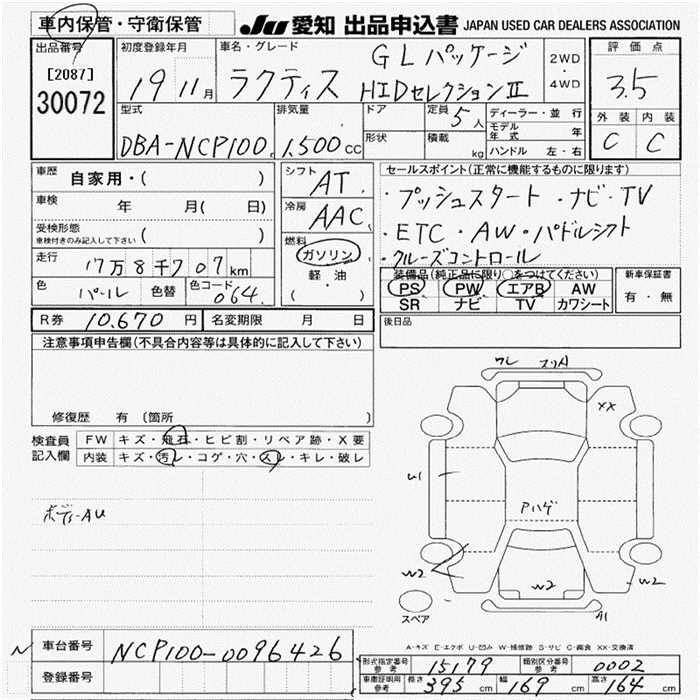 車内保管・守衛保管
JU 愛知 出品申込書 JAPAN USED CAR DEALERS ASSOCIATION
出品番号
[2087]
30072
初度登録年月
19 11月
車名・グレード
ラクティス
GLパッケージ
HIDセレクションⅡ
2WD
・
4WD
評価点
3.5
外装 内装
C C
型式
DBA-NCP100
排気量
1,500cc
ドア
形状
定員 5人
積載 kg
ディーラー・並行
モデル年式 年
ハンドル 左・右
車歴 自家用・( )
車検 年 月( 日)
受検形態
車検付きのみ記入して下さい ( )
走行 17万8千707km
色 パール 色替 色コード 064
シフト AT
冷房 AAC
燃料
ガソリン
軽・油
( ・ )
セールスポイント(正常に機能するものに限ります)
・プッシュスタート・ナビ・TV
・ETC・AW・パドルシフト
・クルーズコントロール
装備品(純正品に限り○をつけてください)
PS PW エアB AW
SR ナビ TV カワシート
新車保証書
有・無
R券 10,670円 名変期限 月 日
後日品
注意事項申告欄(不具合内容等は具体的に記入して下さい)
修復歴 有(箇所
検査員記入欄
FW キズ・飛石・ヒビ割・リペア跡・X要
内装 キズ・汚レ・コゲ・穴・スレ・キレ・破レ
ボディーAU
ワレ スリA
XX
U1
Pハゲ
W2
W2
W2
スペア
A-キズ E-エクボ U-凹み W-補修跡 S-サビ C-腐食 XX-交換済
車台番号 NCP100-0096426
登録番号
形式指定番号 参考 15179 類別区分番号 参考 0002
車庫証明用 参考 長さ 395cm 幅 169cm 高さ 164cm